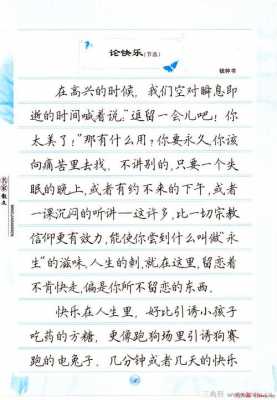 论快乐(节选)
钱钟书
在高兴的时候，我们空对瞬息即
逝的时间喊着说，"逗留一会儿吧！你
太美了！"那有什么用？你要永久，你该
向痛苦里去找。不讲别的，只要一个失
眠的晚上，或者有约不来的下午，或者
一课沉闷的听讲—这许多，比一切宗教
信仰更有效力，能使你尝到什么叫做"永
生"的滋味。人生的刺，就在这里，留恋着
不肯快走，偏是你所不留恋的东西。
快乐在人生里，好比引诱小孩子
吃药的方糖，更像跑狗场里引诱狗赛
跑的电兔子。几分钟或者几天的快乐
名家散文